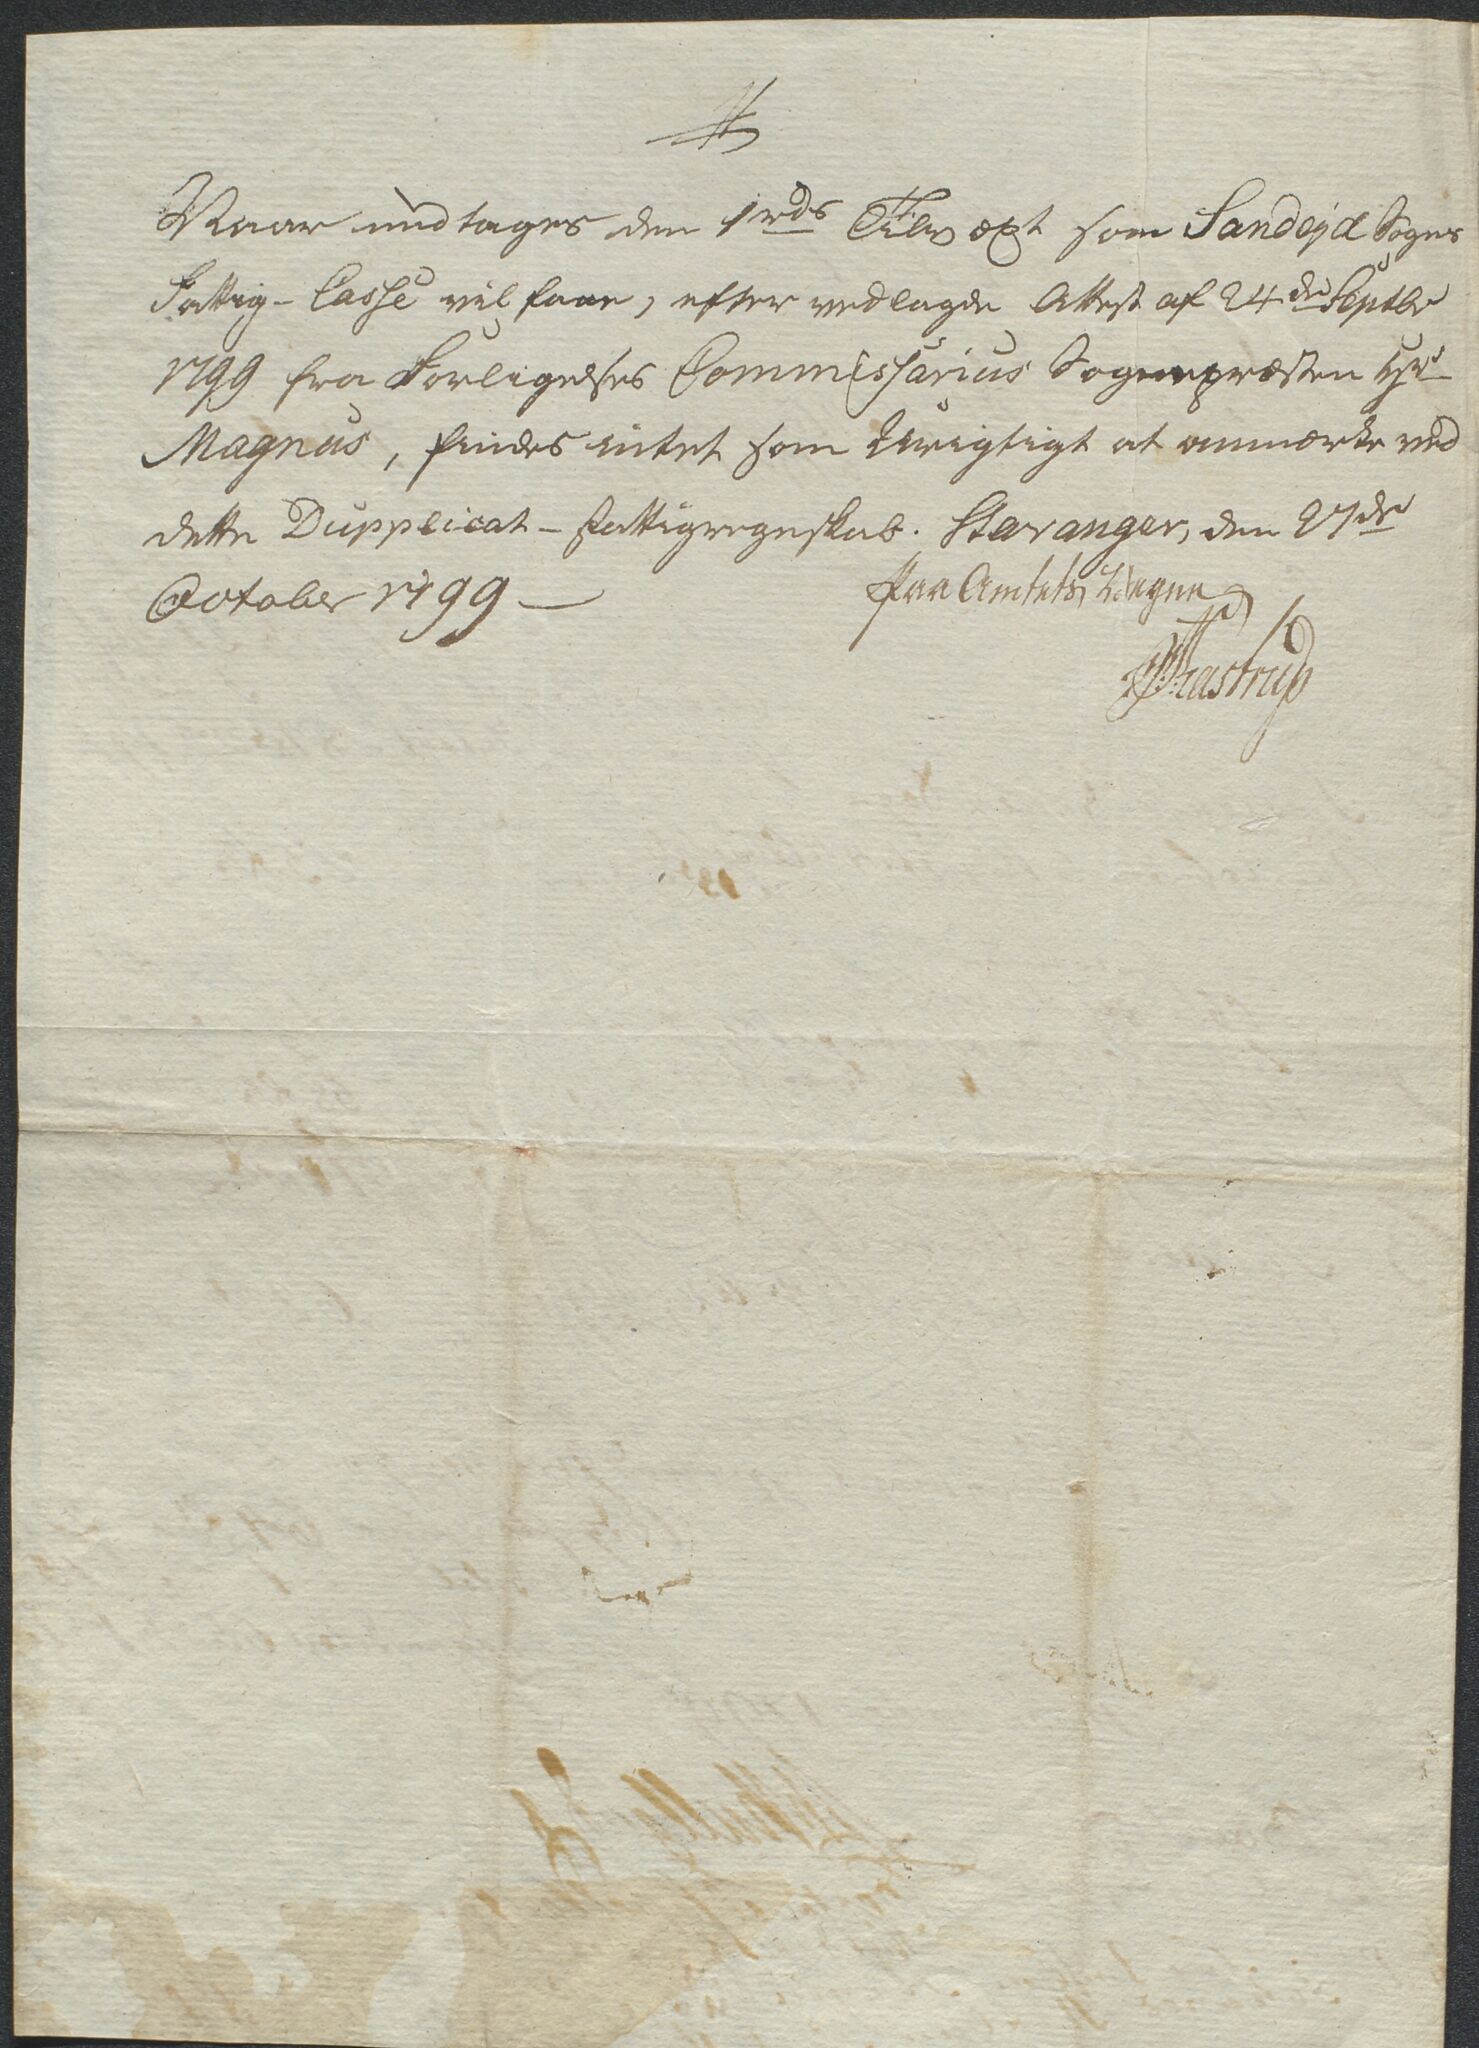 Naar undtages den 1 rds som Sandejd Sogns
Fattig-Casse vil faae, efter vedlagde Attest af 24de Septbr
1799 fra Forligelses Commissarius Sognepræsten Hr
Magnus, findes intet som Urigtigt at anmærke ved
dette Dupplicat-Fattigregnskab. Stavanger, den 27de
October 1799 —
Paa Amtets Vegne